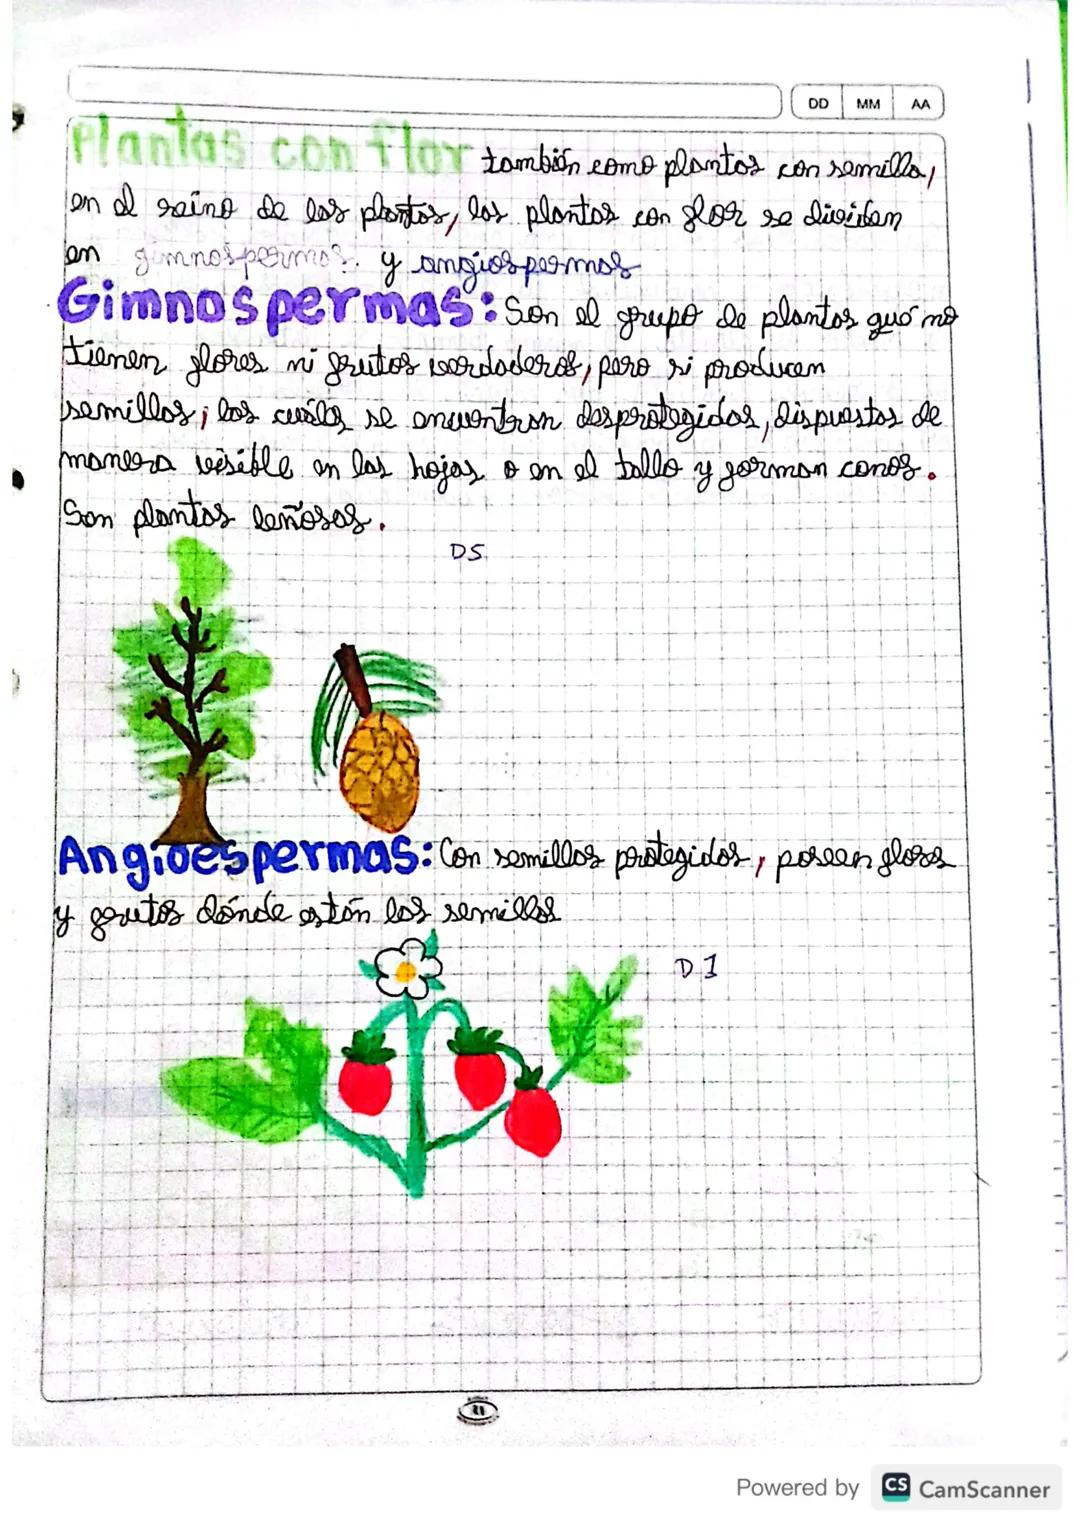 DD MM AA
Plantas con flor también como plantas con semilla,
en el reino de las plantas, las plantas con flor se dividen
en gimnospermas. y angiospermas
Gimnospermas: Son el grupo de plantas qué no
tienen flores ni frutos verdaderos, pero si producen
semillas; las cuáles se encuentran desprotegidas, dispuestas de
manera visible en las hojas o en el tallo y forman conos.
Son plantas leñosas.
D5
Angioespermas: Con semillas protegidas, poseen flores
y frutos dónde están las semillas
D1
Powered by CS CamScanner